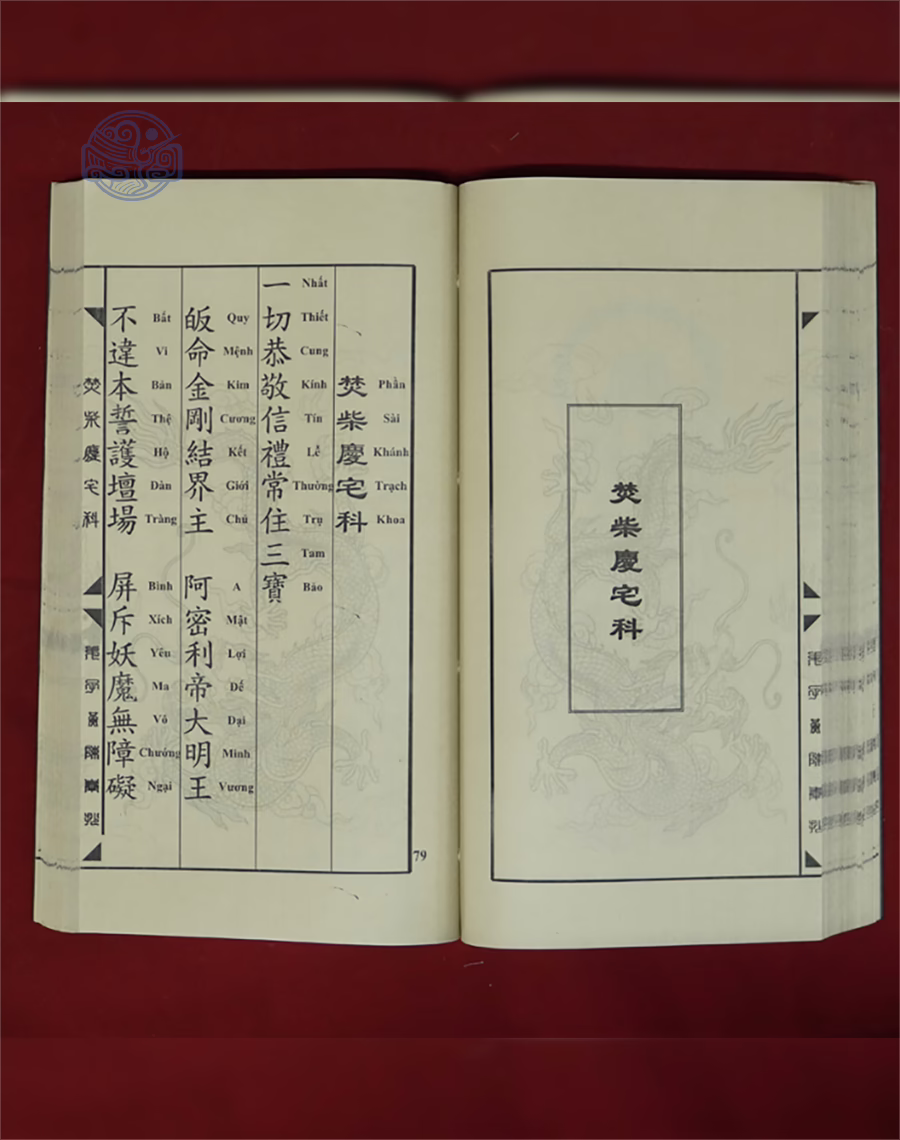 焚柴慶宅科
焚柴慶宅科
Phần Sài Khánh Trạch Khoa
一切恭敬信禮常住三寶
Nhất Thiết Cung Kính Tín Lễ Thường Trụ Tam Bảo
皈命金剛結界主 阿密利帝大明王
Quy Mệnh Kim Cương Kết Giới Chủ A Mật Lợi Đế Đại Minh Vương
不違本誓護壇場 屏斥妖魔無障礙
Bất Vi Bản Thệ Hộ Đàn Tràng Bình Xích Yêu Ma Vô Chướng Ngại
焚柴慶宅科
79